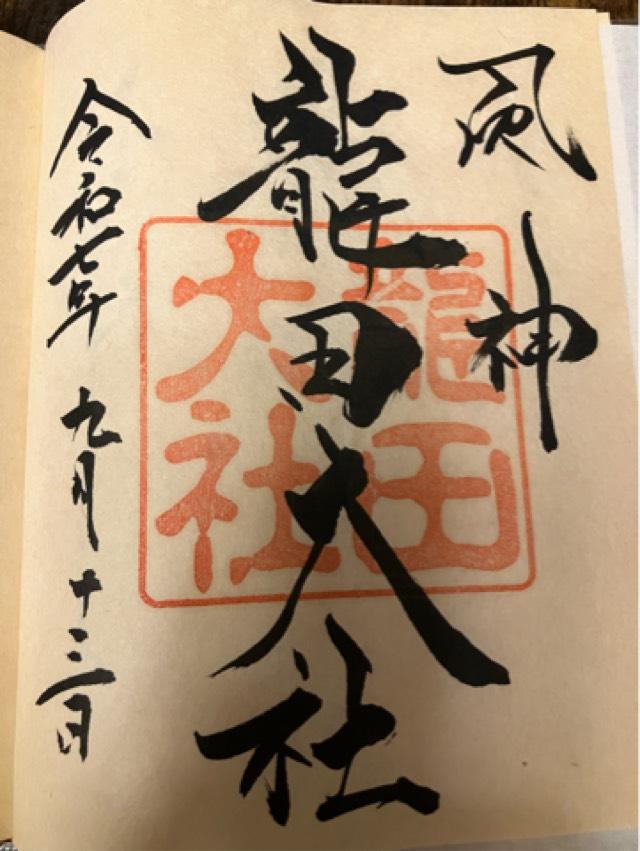 風神
龍田大社
令和七年 九月 十三日
龍田
大社